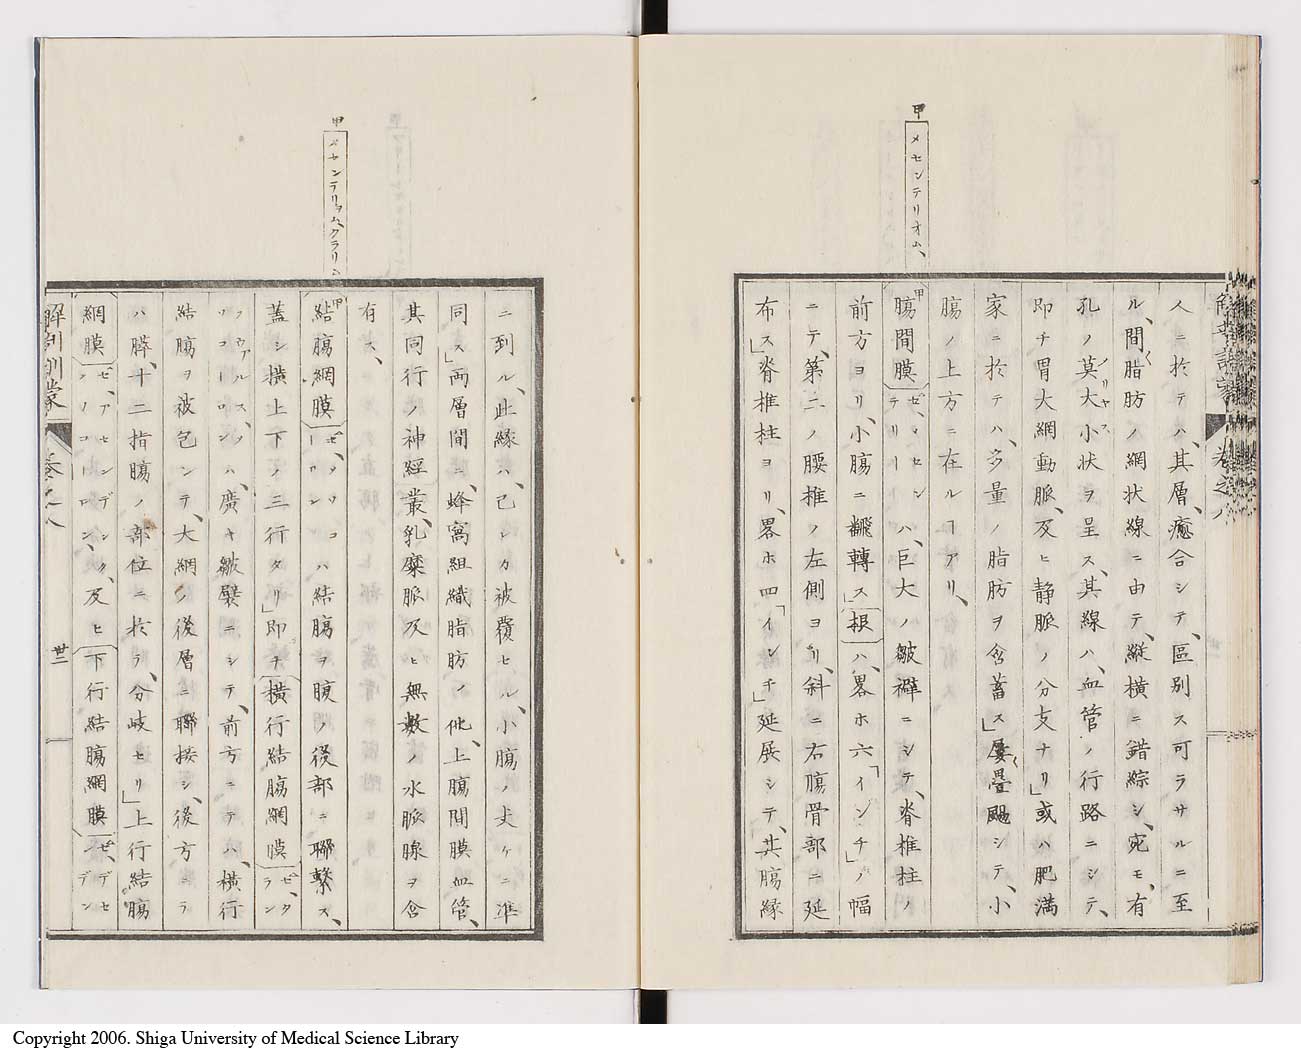 甲
メセンテリオム、
人ニ於テハ、其層癒合シテ、區別ス可ラサルニ至
ル、間脂肪ノ網状線ニ由テ、縦横ニ錯綜シ、宛モ、有
孔ノ莫大小状ヲ呈ス、其線ハ、血管ノ行路ニシテ、
メリヤス
即チ胃大網動脈、及ヒ静脈ノ分支ナリ」或ハ肥満
家ニ於テハ、多量ノ脂肪ヲ含蓄ス」屡疊颺シテ、小
腸ノ上方ニ在ルヿアリ、
甲
腸間膜 ゼ、メセンテリー ハ、巨大ノ皺襀ニシテ、脊椎柱ノ
前方ヨリ、小腸ニ飜轉ス」根ハ、畧ホ六「インチ」ノ幅
ニテ、第二ノ腰椎ノ左側ヨリ、斜ニ右腸骨部ニ延
布ス」脊椎柱ヨリ、畧ホ四「インチ」延展シテ、其腸縁
解剖訓蒙 卷之八
甲
メセンテリヲムヘクラリム
ニ到ル、此縁ハ、己レカ被覆セル、小腸ノ丈ケニ準
同ス」両層間ニ、蜂窩組織脂肪ノ他、上腸間膜血管、
其同行ノ神経叢、乳糜脈及ヒ無數ノ水脈腺ヲ含
有ス、
甲
結腸網膜 ゼ、メソコーロン ハ結腸ヲ腹ノ後部ニ聯繋ス、
蓋シ横上下ノ三行タリ」即チ横行結腸網膜 ゼ、タラン
スウアルス、メソコーロン ハ、廣キ皺襞ニシテ、前方ニテハ、横行
結腸ヲ被包シテ、大網ノ後層ニ聯接シ、後方ニテ
ハ膵、十二指腸ノ部位ニ於テ、分岐セリ」上行結腸
網膜 ゼ、アセンデング、メソコーロン、 及ヒ下行結腸網膜 ゼ、デセンデン
解剖訓蒙 卷之八
廿二
Copyright 2006. Shiga University of Medical Science Library